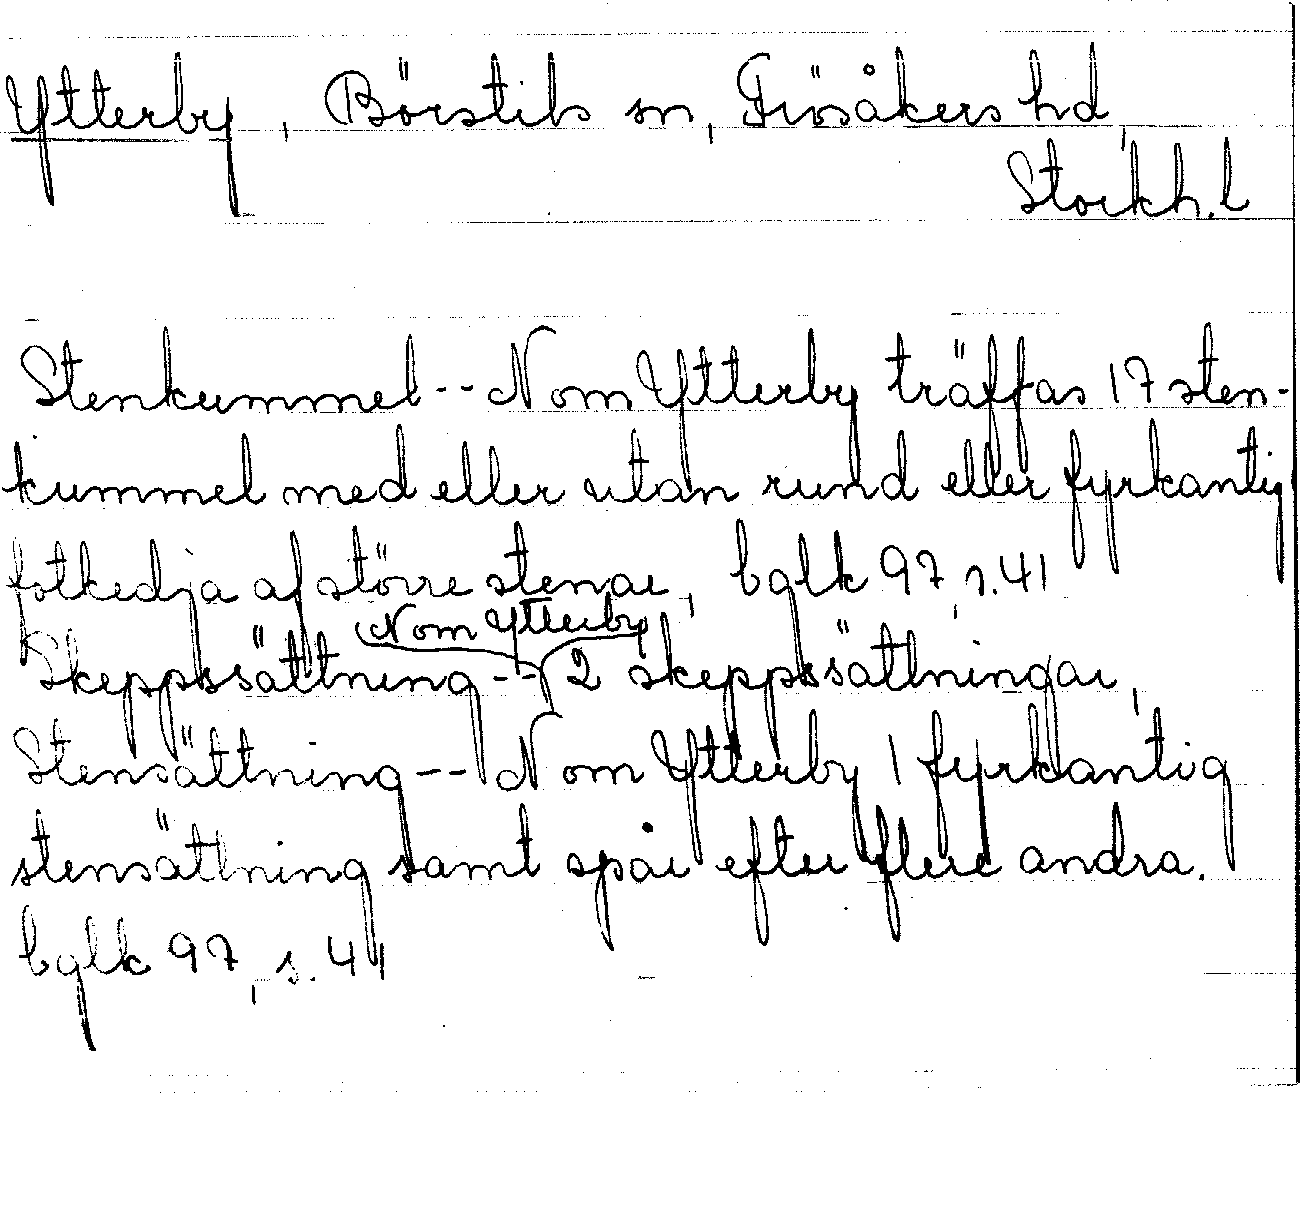 Ytterby, Börstils sn, Frösåkers hd,
Stockh. l
Stenkummel -- N om Ytterby träffas 17 sten-
kummel med eller utan rund eller fyrkantig
fotkedja af större stenar, bglk 97, s. 41
N om Ytterby
Skeppssättning -- 2 skeppssättningar,
Stensättning -- N om Ytterby 1 fyrkantig
stensättning samt spår efter flere andra.
bglk 97, s. 41